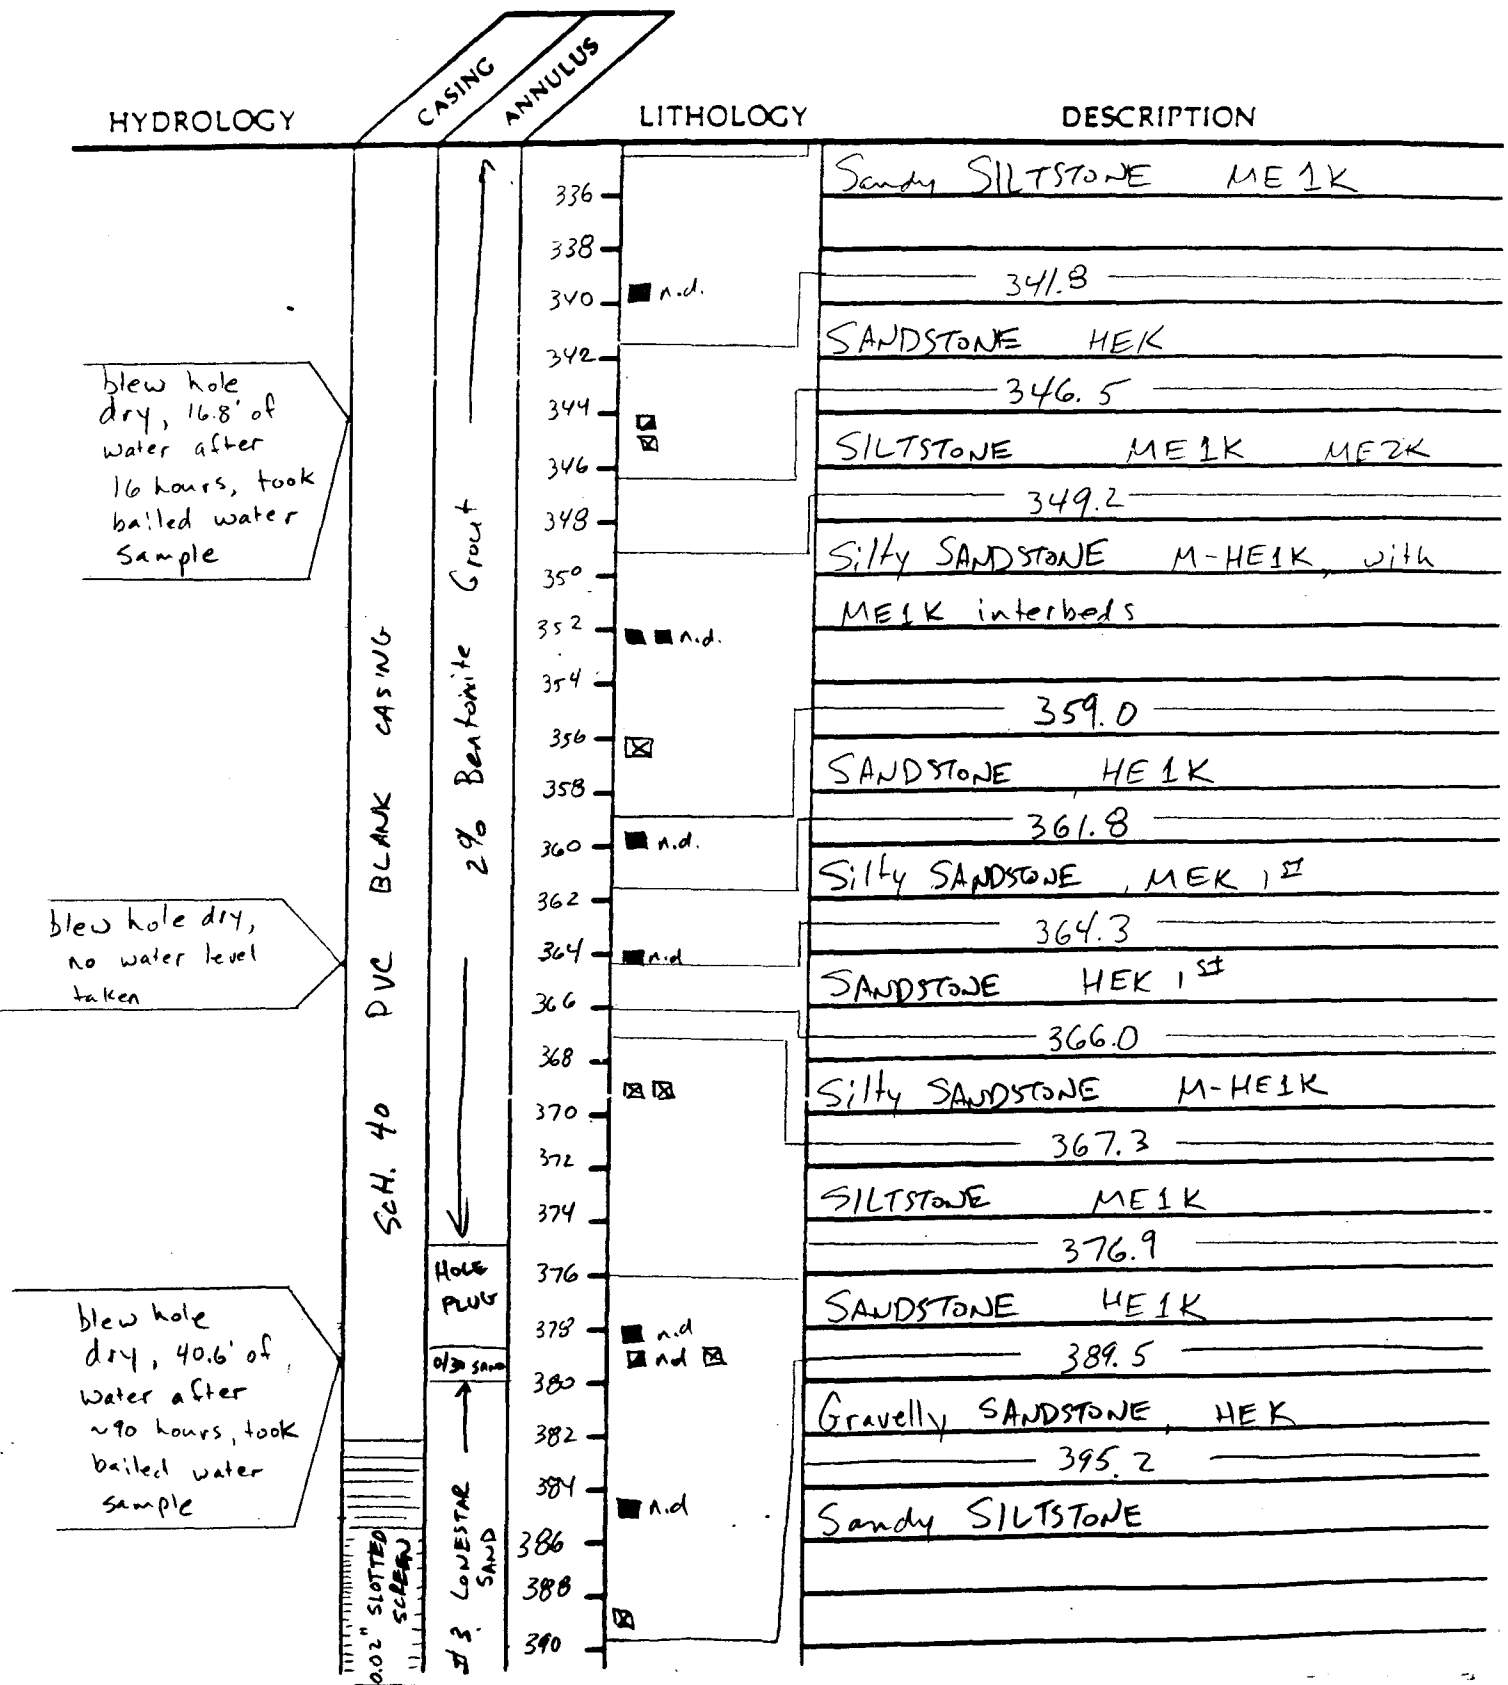 CASING
ANNULUS
HYDROLOGY
LITHOLOGY
DESCRIPTION
blew hole
dry, 16.8' of
water after
16 hours, took
bailed water
Sample
blew hole dry,
no water level
taken
blew hole
dry, 40.6' of
water after
~90 hours, took
bailed water
sample
SCH. 40 PVC BLANK CASING
0.02" SLOTTED
SCREEN
2% Bentonite Grout
HOLE
PLUG
0/30 SAND
#3 LONESTAR
SAND
336
338
340
342
344
346
348
350
352
354
356
358
360
362
364
366
368
370
372
374
376
378
380
382
384
386
388
390
n.d.
n.d.
n.d.
n.d
n.d
nd
n.d
Sandy SILTSTONE ME1K
341.8
SANDSTONE HEK
346.5
SILTSTONE ME1K ME2K
349.2
Silty SANDSTONE M-HE1K, with
ME1K interbeds
359.0
SANDSTONE HE1K
361.8
Silty SANDSTONE, MEK 1st
364.3
SANDSTONE HEK 1st
366.0
Silty SANDSTONE M-HE1K
367.3
SILTSTONE ME1K
376.9
SANDSTONE HE1K
389.5
Gravelly SANDSTONE, HEK
395.2
Sandy SILTSTONE